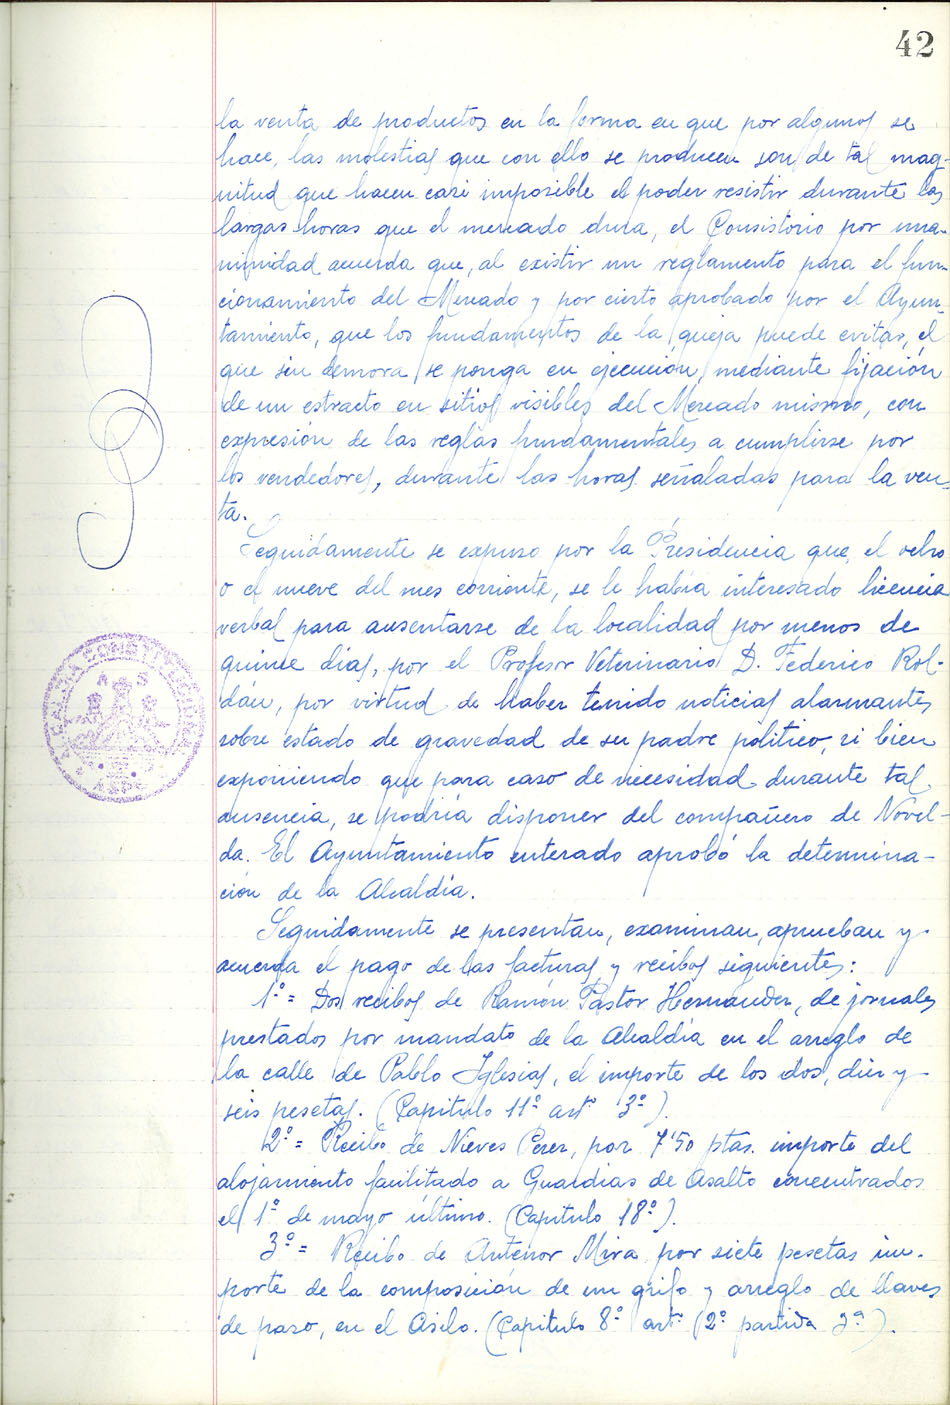 42
la venta de productos en la forma en que por algunos se
hace, las molestias que con ello se producen son de tal mag-
nitud que hacen casi imposible el poder resistir durante las
largas horas que el mercado dura, el Consistorio por una-
nimidad acuerda que, al existir un reglamento para el fun-
cionamiento del Mercado y por cierto aprobado por el Ayun-
tamiento, que los fundamentos de la queja puede evitar, el
que sin demora se ponga en ejecución, mediante fijación
de un estracto en sitios visibles del Mercado mismo, con
expresión de las reglas fundamentales a cumplirse por
los vendedores, durante las horas señaladas para la ven-
ta.
Seguidamente se expuso por la Presidencia que, el ocho
o el nueve del mes corriente, se le había interesado licencia
verbal para ausentarse de la localidad por menos de
quince días, por el Profesor Veterinario D. Federico Rol-
dán, por virtud de haber tenido noticias alarmantes
sobre estado de gravedad de su padre político, si bien
exponiendo que para caso de necesidad durante tal
ausencia, se podría disponer del compañero de Novel-
da. El Ayuntamiento enterado aprobó la determina-
ción de la Alcaldía.
Seguidamente se presentan, examinan, aprueban y
acuerda el pago de las facturas y recibos siguientes:
1º = Dos recibos de Ramón Pastor Hernandez, de jornales
prestados por mandato de la Alcaldía en el arreglo de
la calle de Pablo Iglesias, el importe de los dos, diez y
seis pesetas. (Capitulo 11º artº 3º).
2º = Recibo de Nieves Perez, por 7'50 ptas. importe del
alojamiento facilitado a Guardias de Asalto concentrados
el 1º de mayo último. (Capitulo 18º).
3º = Recibo de Antenor Mira por siete pesetas im-
porte de la composición de un grifo y arreglo de llaves
de paso, en el Asilo. (Capitulo 8º artº 2º partida 2ª).